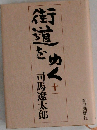 街道をゆく 十
司馬遼太郎